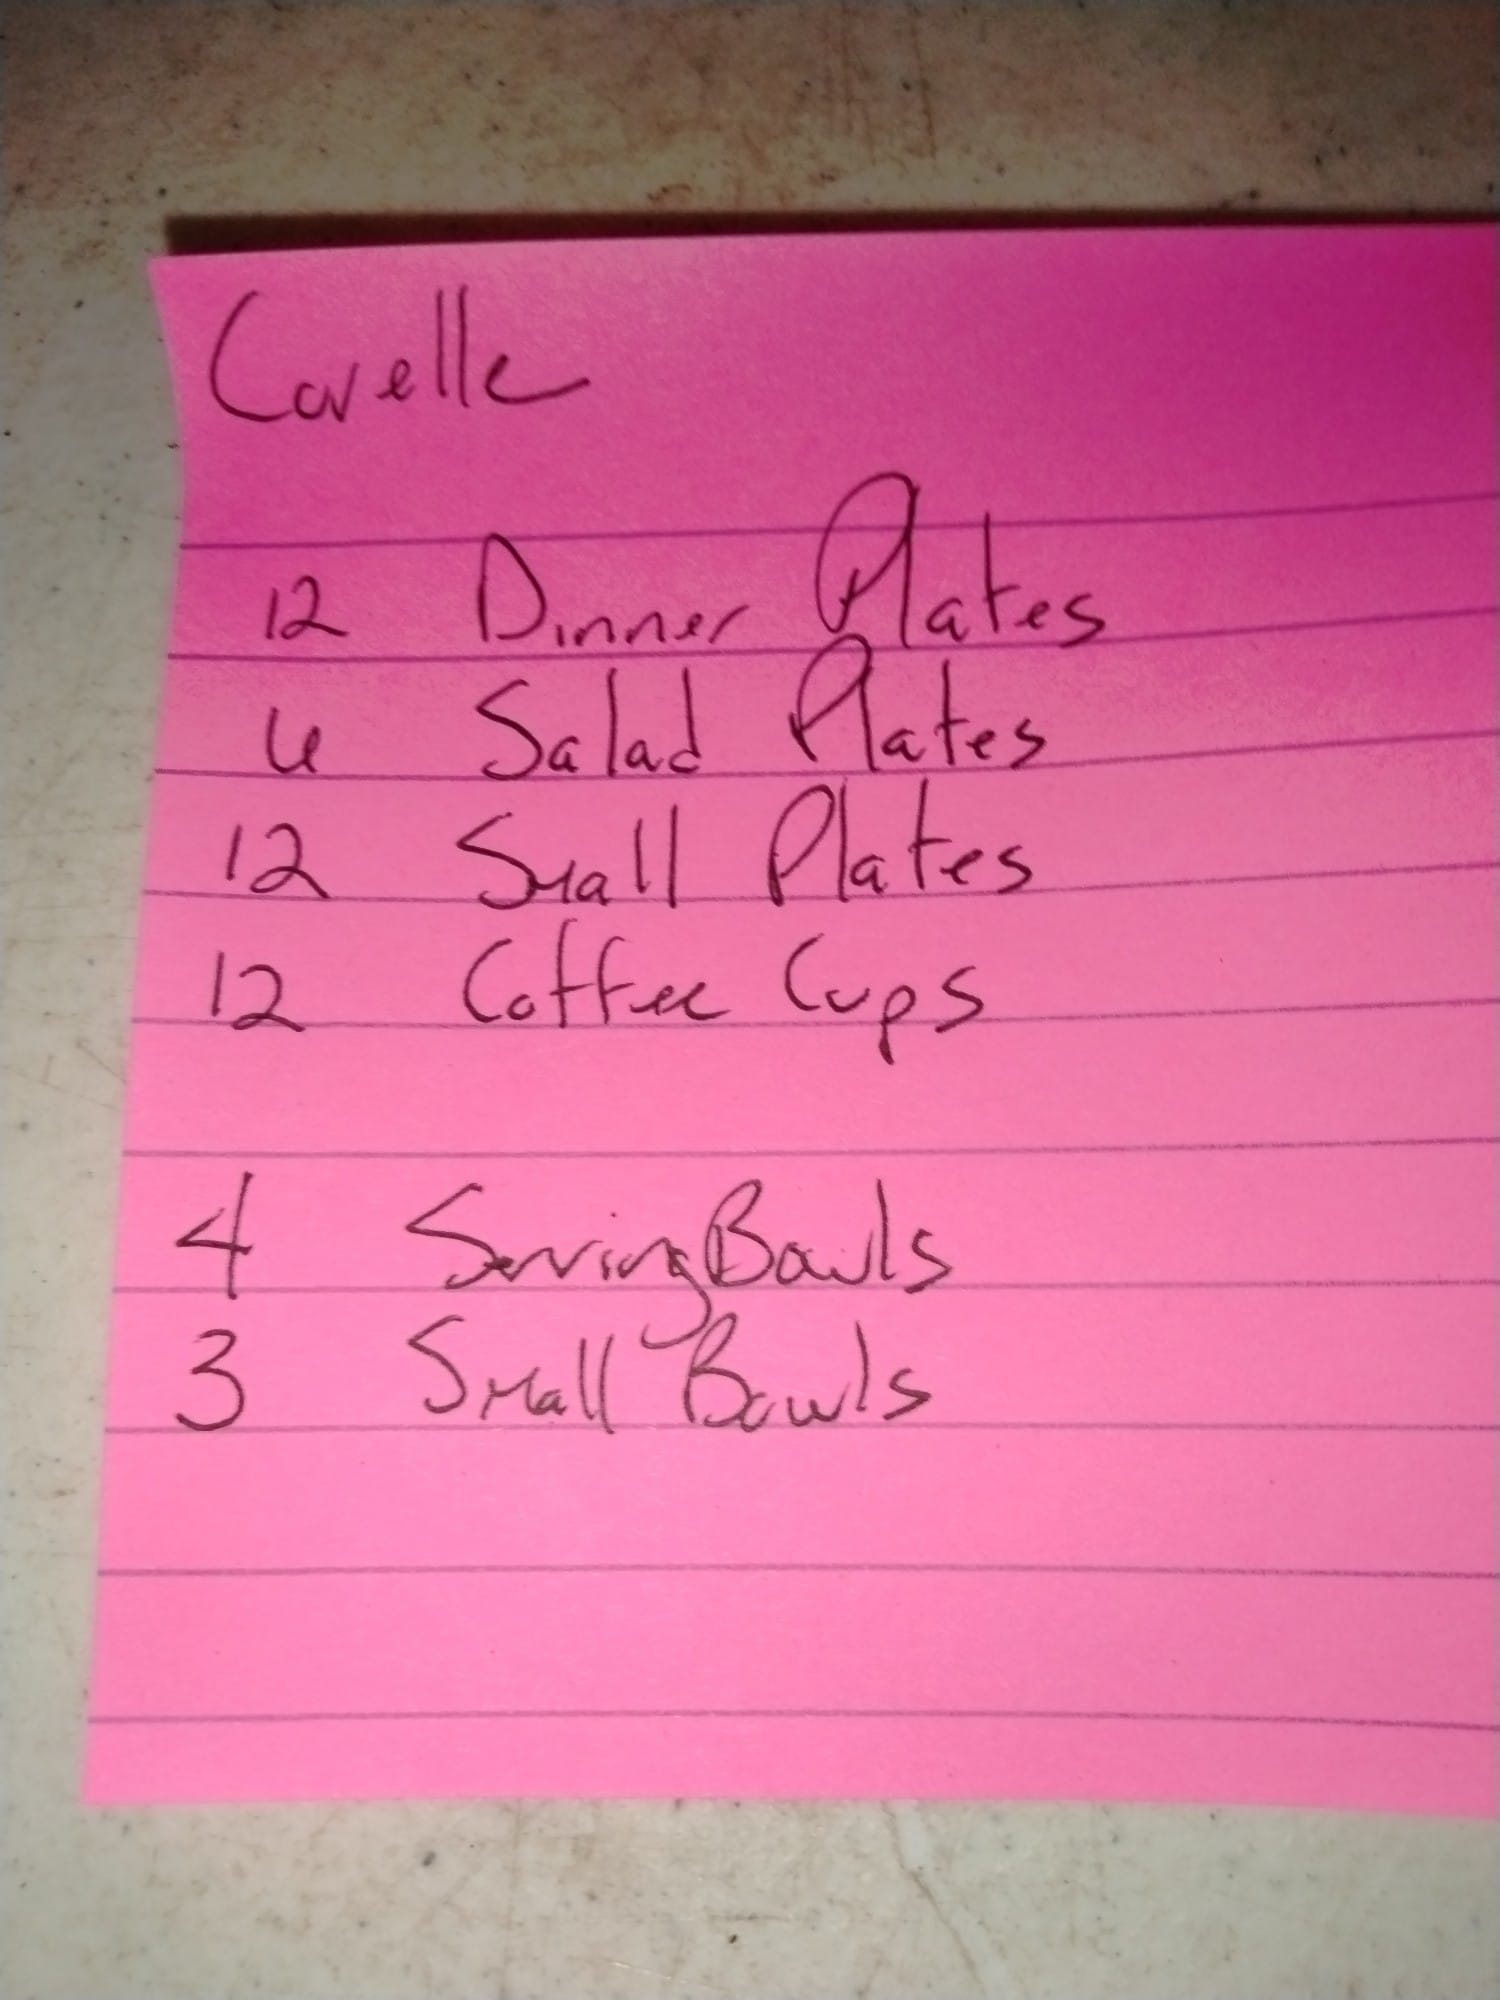 Corelle
12 Dinner Plates
6 Salad Plates
12 Small Plates
12 Coffee Cups
4 Serving Bowls
3 Small Bowls